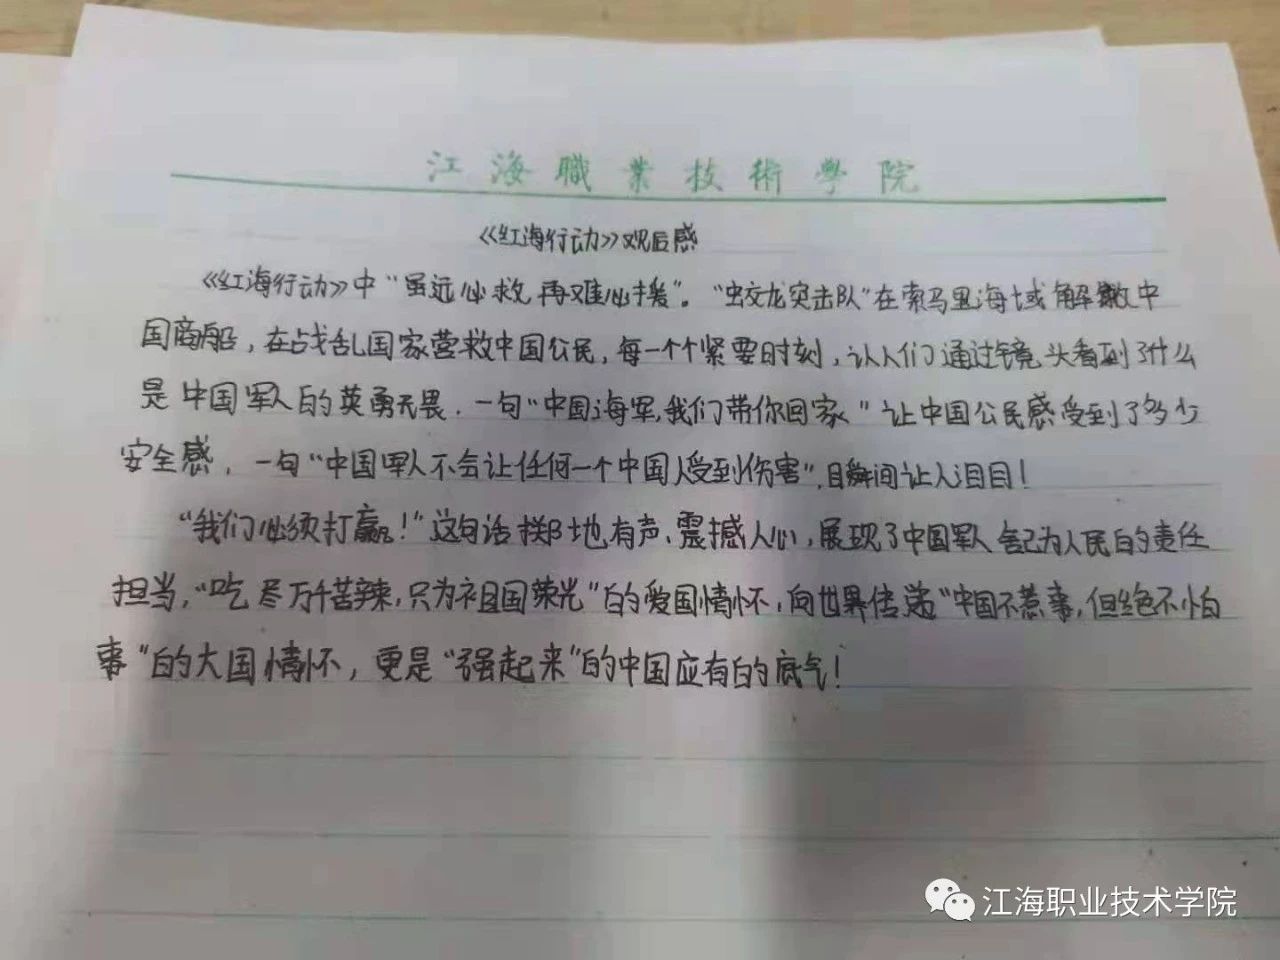 江海職業技術學院
《红海行动》观后感
《红海行动》中“虽远必救,再难必援”。“蛟龙突击队”在索马里海域解救中
国商船，在战乱国家营救中国公民，每一个个紧要时刻，让人们通过镜头看到了什么
是中国军人的英勇无畏．一句“中国海军,我们带你回家”让中国公民感受到了多少
安全感，一句“中国军人不会让任何一个中国人受到伤害”,瞬间让人泪目！
“我们必须打赢！”这句话掷地有声、震撼人心，展现了中国军人舍己为人民的责任
担当，“吃尽万千苦辣，只为祖国荣光”的爱国情怀，向世界传递“中国不惹事，但绝不怕
事”的大国情怀，更是“强起来”的中国应有的底气！
江海职业技术学院